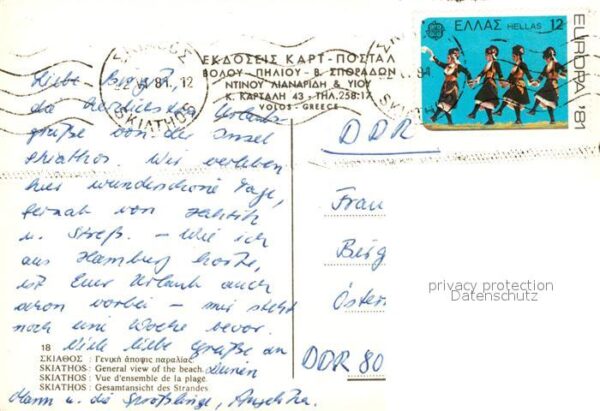 ΣΚΙΑΘΟΣ
81. 12
SKIATHOS
ΕΚΔΟΣΕΙΣ ΚΑΡΤ-ΠΟΣΤΑΛ
ΒΟΛΟΥ - ΠΗΛΙΟΥ - Β. ΣΠΟΡΑΔΩΝ
ΝΤΙΝΟΥ ΛΙΑΝΑΡΙΔΗ & ΥΙΟΥ
Κ. ΚΑΡΤΑΛΗ 43 - ΤΗΛ. 258:17
VOLOS - GREECE
ΕΛΛΑΣ HELLAS 12
EUROPA '81
Liebe
die herzlichsten Urlaubs-
grüße von der Insel
Skiathos. Wir verleben
hier wunderschöne Tage,
fernab von Hektik
u. Streß. – Wie ich
aus Hamburg hörte,
ist Euer Urlaub auch
schon vorbei – mir steht
noch eine Woche bevor.
Viele liebe Grüße an
Deinen
Mann u. die Sprößlinge,
DDR
Frau
Öster
DDR 80
privacy protection
Datenschutz
18
ΣΚΙΑΘΟΣ : Γενική άποψις παραλίας.
SKIATHOS : General view of the beach.
SKIATHOS : Vue d'ensemble de la plage.
SKIATHOS : Gesamtansicht des Strandes